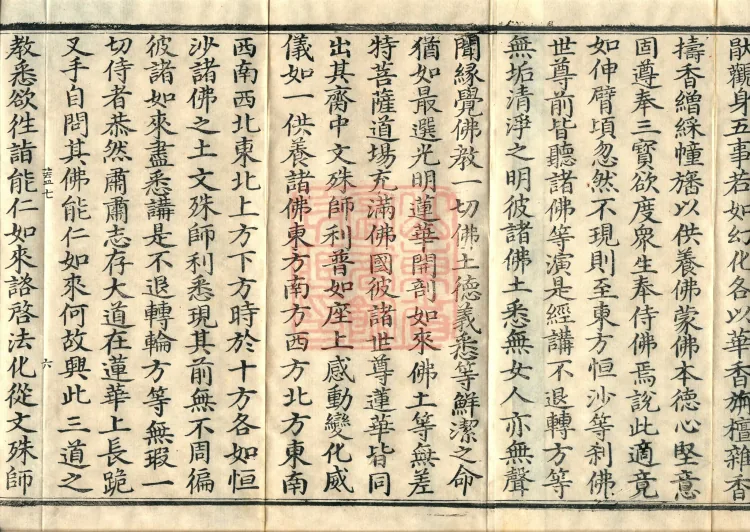 猒觀身五事若如幻化各以華香栴檀雜香
擣香繒綵幢旛以供養佛蒙佛本德心堅意
固遵奉三寳欲度衆生奉侍佛焉說此適竟
如伸臂頃忽然不現則至東方恒沙等刹佛
世尊前皆聽諸佛等演是經講不退轉方等
無垢清淨之明彼諸佛土悉無女人亦無聲
聞緣覺佛教一切佛土德義悉等鮮潔之命
猶如最選光明蓮華開剖如來佛土等無差
特菩薩道場充滿佛國彼諸世尊蓮華皆同
出其齋中文殊師利普如座上感動變化威
儀如一供養諸佛東方南方西方北方東南
西南西北東北上方下方時於十方各如恒
沙諸佛之土文殊師利悉現其前無不周徧
彼諸如來盡悉講是不退轉輪方等無瑕一
切侍者恭然肅肅志存大道在蓮華上長跪
叉手自問其佛能仁如來何故興此三道之
教悉欲往詣能仁如來諮啓法化從文殊師
七
六